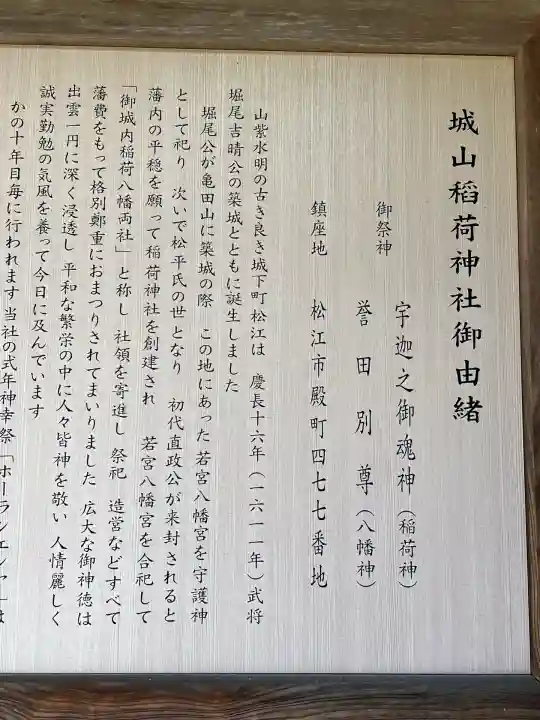 城山稲荷神社御由緒
御祭神　宇迦之御魂神（稲荷神）
誉田別尊（八幡神）
鎮座地　松江市殿町四七七番地
山紫水明の古き良き城下町松江は　慶長十六年（一六一一年）武将
堀尾吉晴公の築城とともに誕生しました
堀尾公が亀田山に築城の際　この地にあった若宮八幡宮を守護神
として祀り　次いで松平氏の世となり　初代直政公が来封されると
藩内の平穏を願って稲荷神社を創建され　若宮八幡宮を合祀して
「御城内稲荷八幡両社」と称し　社領を寄進し　祭祀　造営などすべて
藩費をもって格別鄭重におまつりされてまいりました　広大な御神徳は
出雲一円に深く浸透し　平和な繁栄の中に人々皆神を敬い　人情麗しく
誠実勤勉の気風を養って今日に及んでいます
かの十年目毎に行われます当社の式年神幸祭「ホーランエンヤ」は